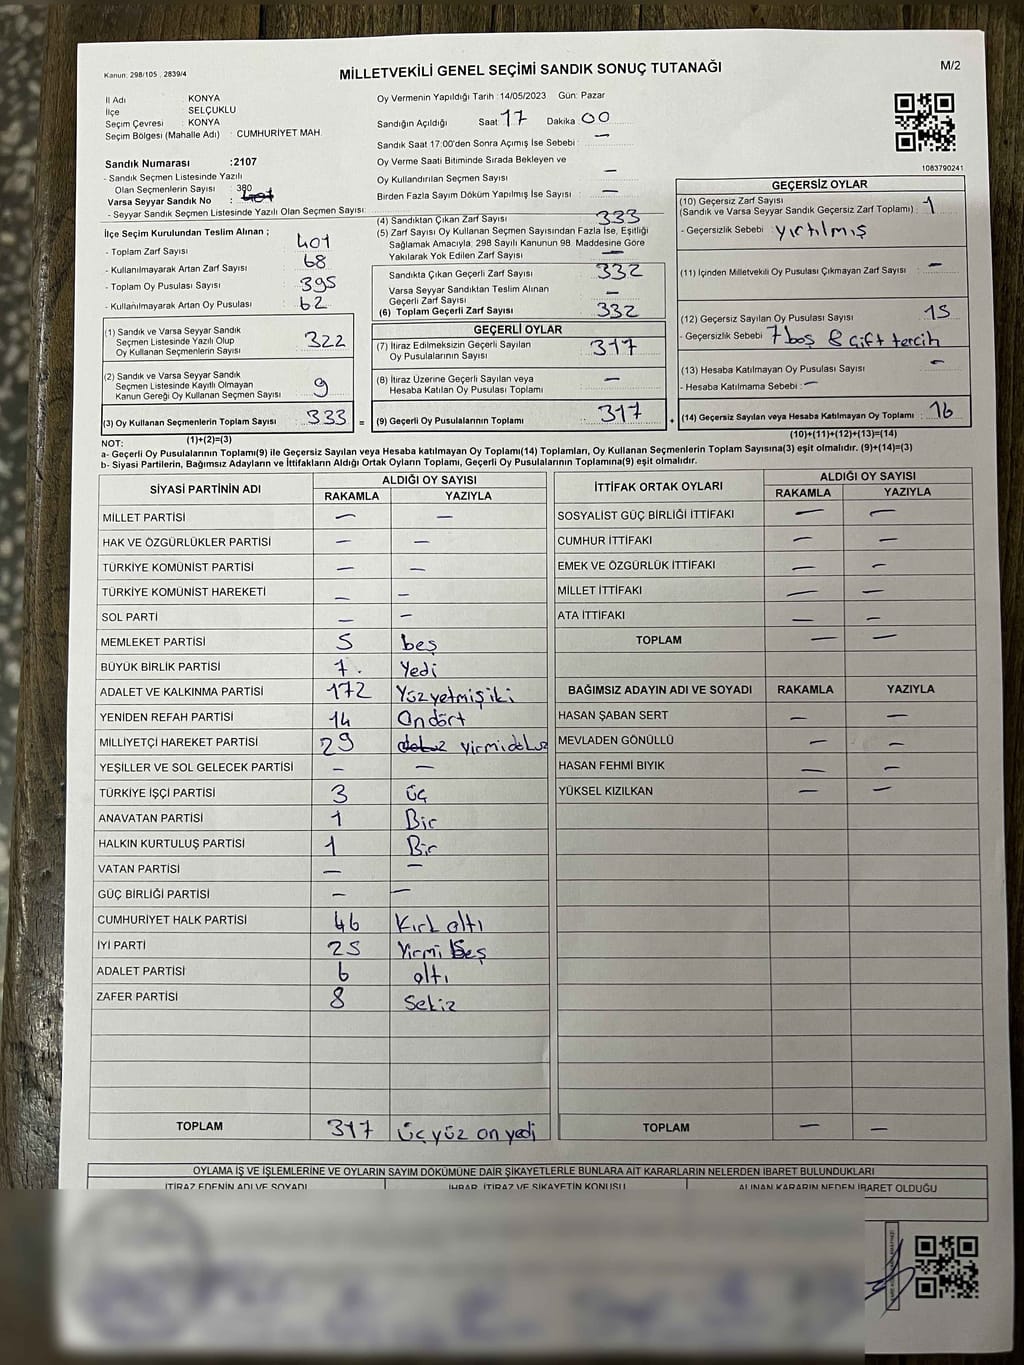 Kanun: 298/105 , 2839/4
MİLLETVEKİLİ GENEL SEÇİMİ SANDIK SONUÇ TUTANAĞI
M/2
İl Adı KONYA
İlçe SELÇUKLU
Seçim Çevresi : KONYA
Seçim Bölgesi (Mahalle Adı) : CUMHURİYET MAH.
Sandık Numarası :2107
- Sandık Seçmen Listesinde Yazılı
Olan Seçmenlerin Sayısı : 380
Varsa Seyyar Sandık No :
- Seyyar Sandık Seçmen Listesinde Yazılı Olan Seçmen Sayısı:
Oy Vermenin Yapıldığı Tarih : 14/05/2023 Gün: Pazar
Sandığın Açıldığı Saat 17 Dakika 00
Sandık Saat 17:00'den Sonra Açımış İse Sebebi : —
Oy Verme Saati Bitiminde Sırada Bekleyen ve
Oy Kullandırılan Seçmen Sayısı —
Birden Fazla Sayım Döküm Yapılmış İse Sayısı : —
1083790241
İlçe Seçim Kurulundan Teslim Alınan ;
- Toplam Zarf Sayısı : 401
- Kullanılmayarak Artan Zarf Sayısı : 68
- Toplam Oy Pusulası Sayısı : 395
- Kullanılmayarak Artan Oy Pusulası : 62
(1) Sandık ve Varsa Seyyar Sandık
Seçmen Listesinde Yazılı Olup
Oy Kullanan Seçmenlerin Sayısı 322
(2) Sandık ve Varsa Seyyar Sandık
Seçmen Listesinde Kayıtlı Olmayan
Kanun Gereği Oy Kullanan Seçmen Sayısı : 9
(3) Oy Kullanan Seçmenlerin Toplam Sayısı : 333
(1)+(2)=(3)
(4) Sandıktan Çıkan Zarf Sayısı 333
(5) Zarf Sayısı Oy Kullanan Seçmen Sayısından Fazla İse, Eşitliği
Sağlamak Amacıyla, 298 Sayılı Kanunun 98. Maddesine Göre
Yakılarak Yok Edilen Zarf Sayısı —
Sandıkta Çıkan Geçerli Zarf Sayısı : 332
Varsa Seyyar Sandıktan Teslim Alınan
Geçerli Zarf Sayısı —
(6) Toplam Geçerli Zarf Sayısı : 332
GEÇERLİ OYLAR
(7) İtiraz Edilmeksizin Geçerli Sayılan
Oy Pusulalarının Sayısı : 317
(8) İtiraz Üzerine Geçerli Sayılan veya
Hesaba Katılan Oy Pusulası Toplamı : —
= (9) Geçerli Oy Pusulalarının Toplamı : 317
GEÇERSİZ OYLAR
(10) Geçersiz Zarf Sayısı
(Sandık ve Varsa Seyyar Sandık Geçersiz Zarf Toplamı) : 1
- Geçersizlik Sebebi : yırtılmış
(11) İçinden Milletvekili Oy Pusulası Çıkmayan Zarf Sayısı : —
(12) Geçersiz Sayılan Oy Pusulası Sayısı : 15
- Geçersizlik Sebebi : 7 boş 8 çift tercih
(13) Hesaba Katılmayan Oy Pusulası Sayısı : —
- Hesaba Katılmama Sebebi : —
+ (14) Geçersiz Sayılan veya Hesaba Katılmayan Oy Toplamı : 16
(10)+(11)+(12)+(13)=(14)
NOT:
a- Geçerli Oy Pusulalarının Toplamı(9) ile Geçersiz Sayılan veya Hesaba katılmayan Oy Toplamı(14) Toplamları, Oy Kullanan Seçmenlerin Toplam Sayısına(3) eşit olmalıdır. (9)+(14)=(3)
b- Siyasi Partilerin, Bağımsız Adayların ve İttifakların Aldığı Ortak Oyların Toplamı, Geçerli Oy Pusulalarının Toplamına(9) eşit olmalıdır.
SİYASİ PARTİNİN ADI ALDIĞI OY SAYISI
RAKAMLA YAZIYLA
MİLLET PARTİSİ — —
HAK VE ÖZGÜRLÜKLER PARTİSİ — —
TÜRKİYE KOMÜNİST PARTİSİ — —
TÜRKİYE KOMÜNİST HAREKETİ — —
SOL PARTİ — —
MEMLEKET PARTİSİ 5 beş
BÜYÜK BİRLİK PARTİSİ 7 Yedi
ADALET VE KALKINMA PARTİSİ 172 Yüzyetmişiki
YENİDEN REFAH PARTİSİ 14 Ondört
MİLLİYETÇİ HAREKET PARTİSİ 29 dokuz yirmidokuz
YEŞİLLER VE SOL GELECEK PARTİSİ — —
TÜRKİYE İŞÇİ PARTİSİ 3 üç
ANAVATAN PARTİSİ 1 Bir
HALKIN KURTULUŞ PARTİSİ 1 Bir
VATAN PARTİSİ — —
GÜÇ BİRLİĞİ PARTİSİ — —
CUMHURİYET HALK PARTİSİ 46 Kırk altı
İYİ PARTİ 25 Yirmi Beş
ADALET PARTİSİ 6 altı
ZAFER PARTİSİ 8 Sekiz
TOPLAM 317 üç yüz on yedi
İTTİFAK ORTAK OYLARI ALDIĞI OY SAYISI
RAKAMLA YAZIYLA
SOSYALİST GÜÇ BİRLİĞİ İTTİFAKI — —
CUMHUR İTTİFAKI — —
EMEK VE ÖZGÜRLÜK İTTİFAKI — —
MİLLET İTTİFAKI — —
ATA İTTİFAKI — —
TOPLAM — —
BAĞIMSIZ ADAYIN ADI VE SOYADI RAKAMLA YAZIYLA
HASAN ŞABAN SERT — —
MEVLADEN GÖNÜLLÜ — —
HASAN FEHMİ BIYIK — —
YÜKSEL KIZILKAN — —
TOPLAM — —
OYLAMA İŞ VE İŞLEMLERİNE VE OYLARIN SAYIM DÖKÜMÜNE DAİR ŞİKAYETLERLE BUNLARA AİT KARARLARIN NELERDEN İBARET BULUNDUKLARI
İTİRAZ EDENİN ADI VE SOYADI İHBAR, İTİRAZ VE ŞİKAYETİN KONUSU ALINAN KARARIN NEDEN İBARET OLDUĞU